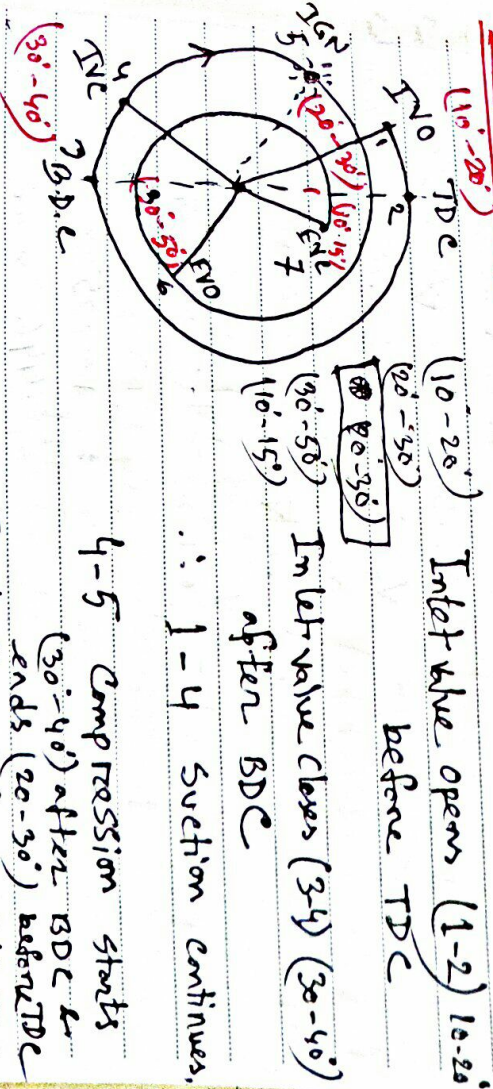 (10°-20°)
IVO
TDC
1
2
IGN
5
(20°-30°)
(10°-15°)
EVC
7
EVO
6
(30°-50°)
4
IVC
(30°-40°)
3
B.D.C
(10°-20°)
(20°-30°)
20°-30°)
(30°-50°)
(10°-15°)
Inlet valve opens (1-2) 10-20°
before TDC
Inlet valve closes (3-4) (30-40°)
after BDC
∴ 1-4 Suction continues.
4-5 Compression starts
(30°-40°) after BDC &
ends (20-30°) before TDC